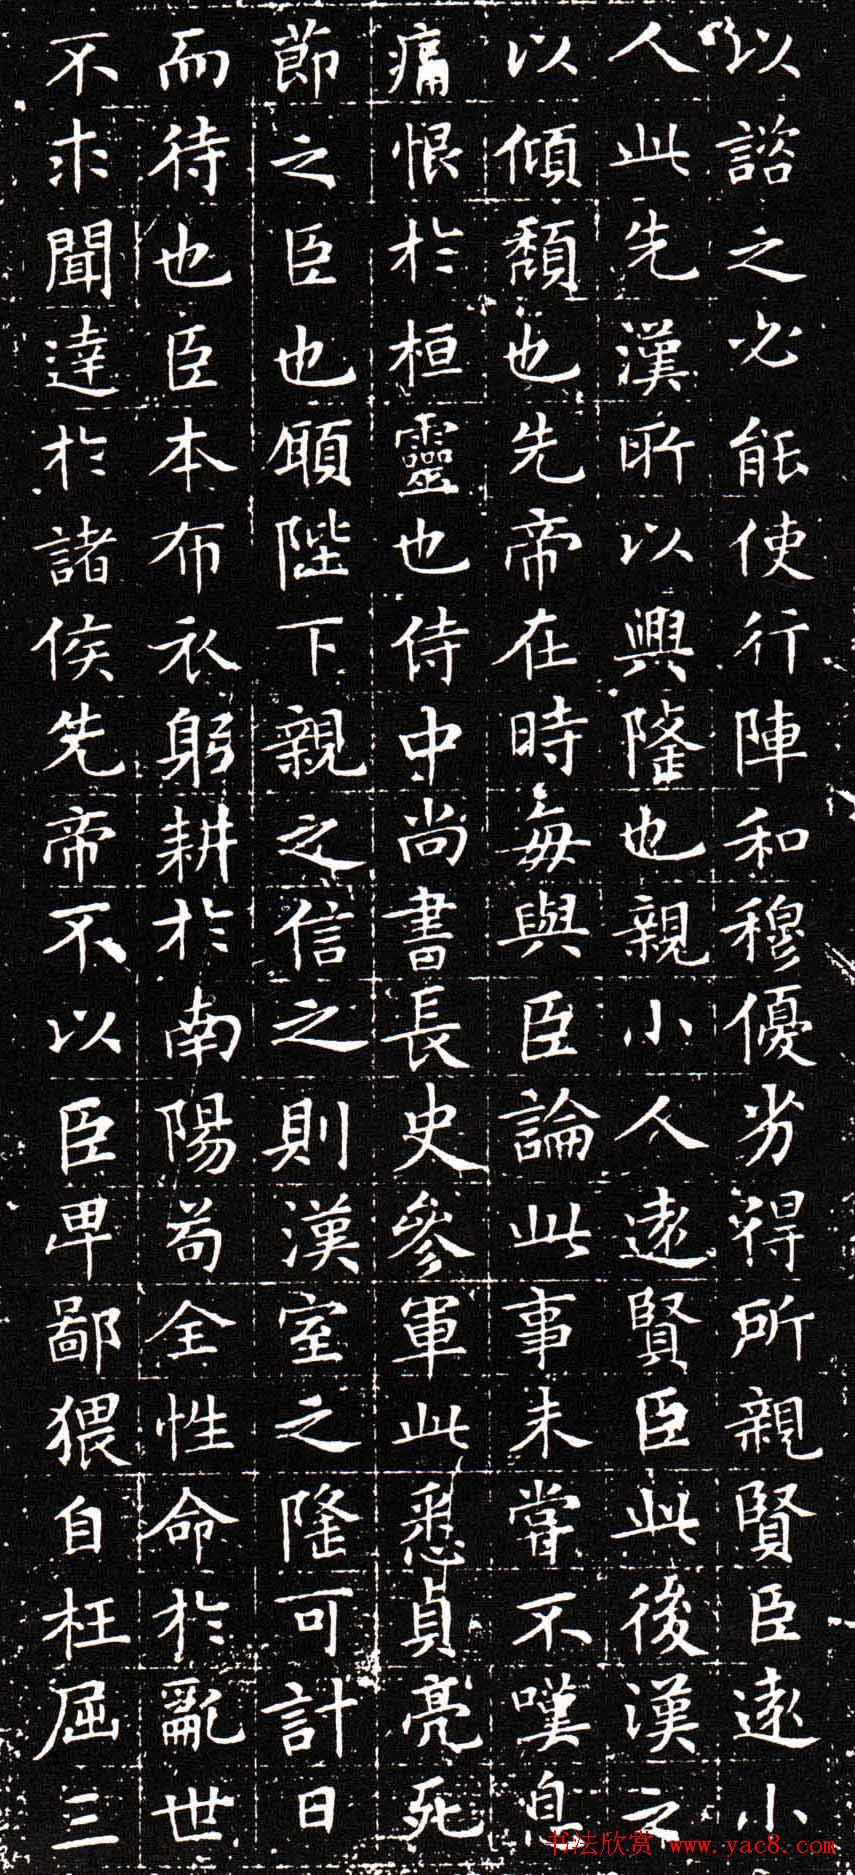 以諮之必能使行陣和穆優劣得所親賢臣遠小
人此先漢所以興隆也親小人遠賢臣此後漢之
以傾頹也先帝在時每與臣論此事未嘗不嘆息
痛恨於桓靈也侍中尚書長史參軍此悉貞亮死
節之臣也願陛下親之信之則漢室之隆可計日
而待也臣本布衣躬耕於南陽苟全性命於亂世
不求聞達於諸侯先帝不以臣卑鄙猥自枉屈三
书法欣赏 www.yac8.com